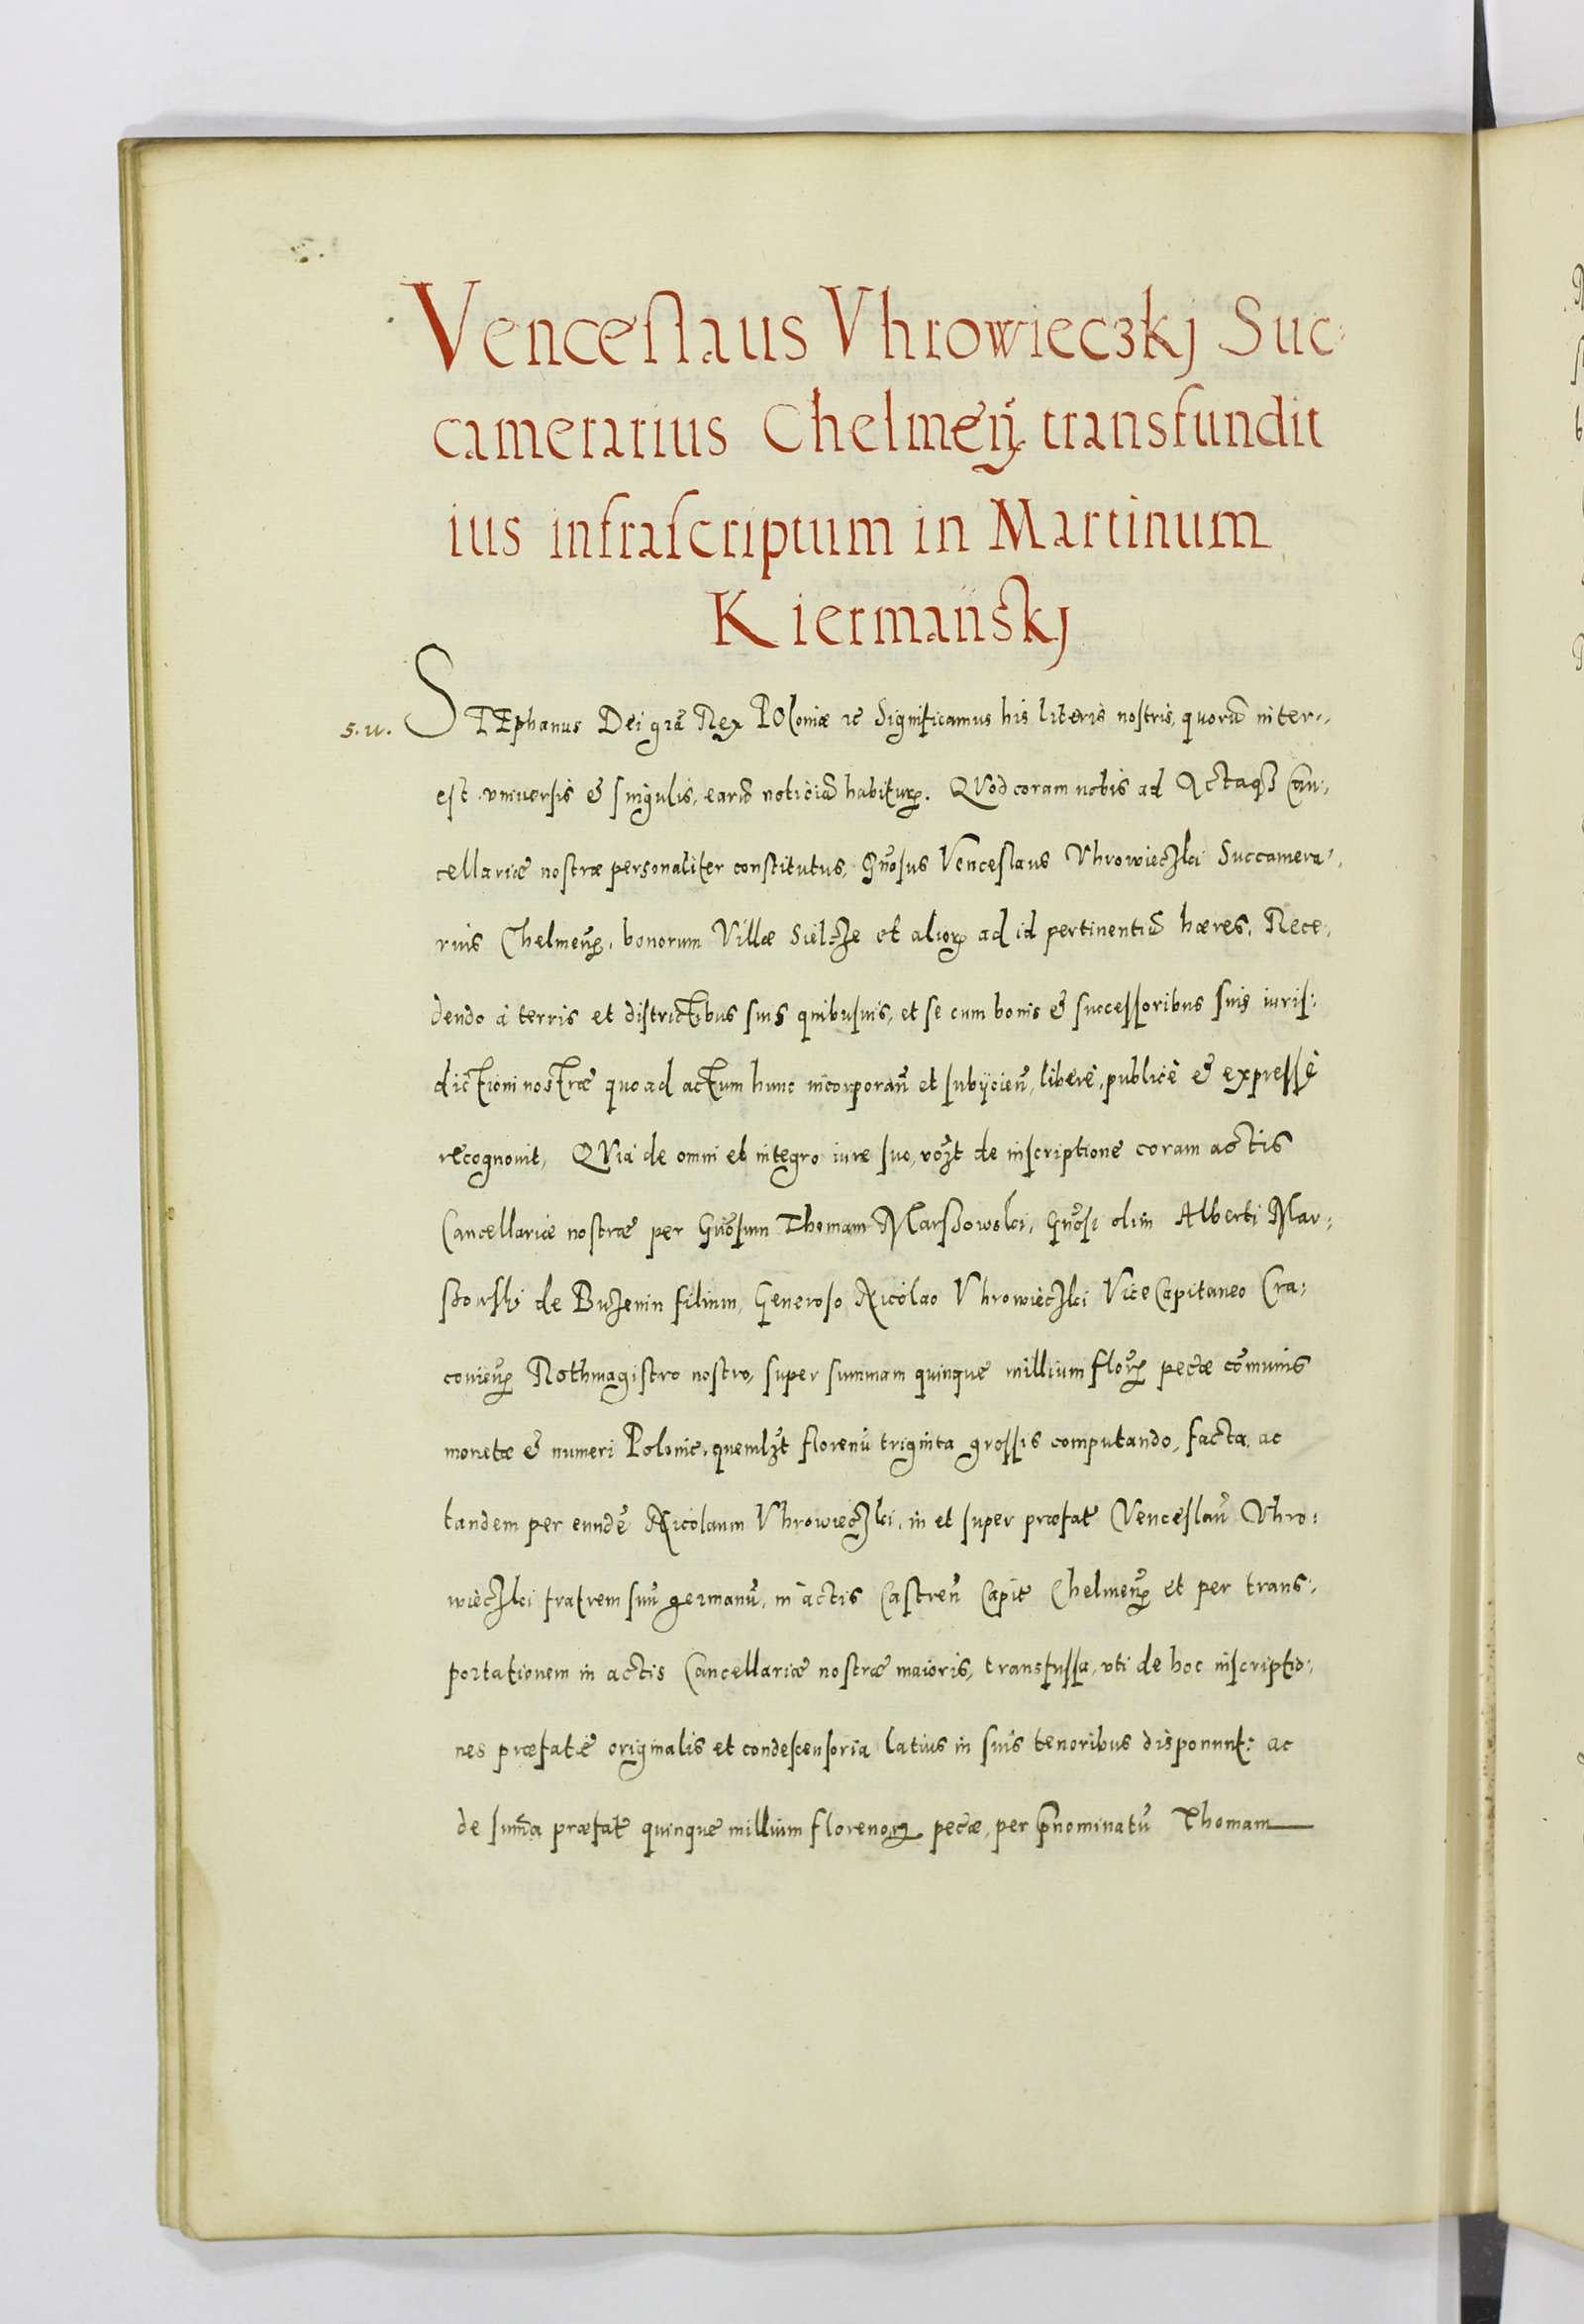 Venceslaus Vhrowieczkj Suc:
camerarius Chelmeń transfundit
ius infrascriptum in Martinum
Kiermańskj
5. u.
STEphanus Dei grã Rex POloniæ rc̃ Significamus his literis nostris, quorũ inter:
est vniuersis & singulis, earũ noticiã habiturꝝ. QVod coram nobis ad Actaqꝫ Can:
cellariæ nostræ personaliter constitutus, Gñosus Venceslaus Vhrowieczki Succamera:
rius Chelmeñ, bonorum Villæ Sielcze et aliorꝝ ad id pertinentiũ hæres, Rece:
dendo à terris et districtibus suis quibusuis, et se cum bonis & successoribus suis iuris:
dictioni nostræ quoad actum hunc incorporañ et subijcieñ, liberè, publicè & expressè
recognouit, QVia de omni et integro iure suo, vꝫt de inscriptione coram actis
Cancellariæ nostræ per Gñosum Thomam Marszowski, Gñosi olim Alberti Mar:
szowski de Buzenin filium, Generoso Nicolao Vhrowieczki ViceCapitaneo Cra:
couieñ Rothmagistro nostro, super summam quinque millium florꝝ pecæ cõmunis
monetæ & numeri Polonic. quemlꝫt florenũ triginta grossis computando, facta, ac
tandem per eundẽ Nicolaum Vhrowieczki, in et super præfat̃ Venceslaũ Vhro:
wieczki fratrem suũ germanũ, in actis Castreñ Capit̃ Chelmeñ et per trans:
portationem in actis Cancellariæ nostræ maioris, transfussa, vti de hoc inscriptio:
nes præfatæ originalis et condescensoria latius in suis tenoribus disponunt: ac
de sum̃a præfat̃ quinque millium florenorꝝ pecæ, per p̃nominatũ Thomam